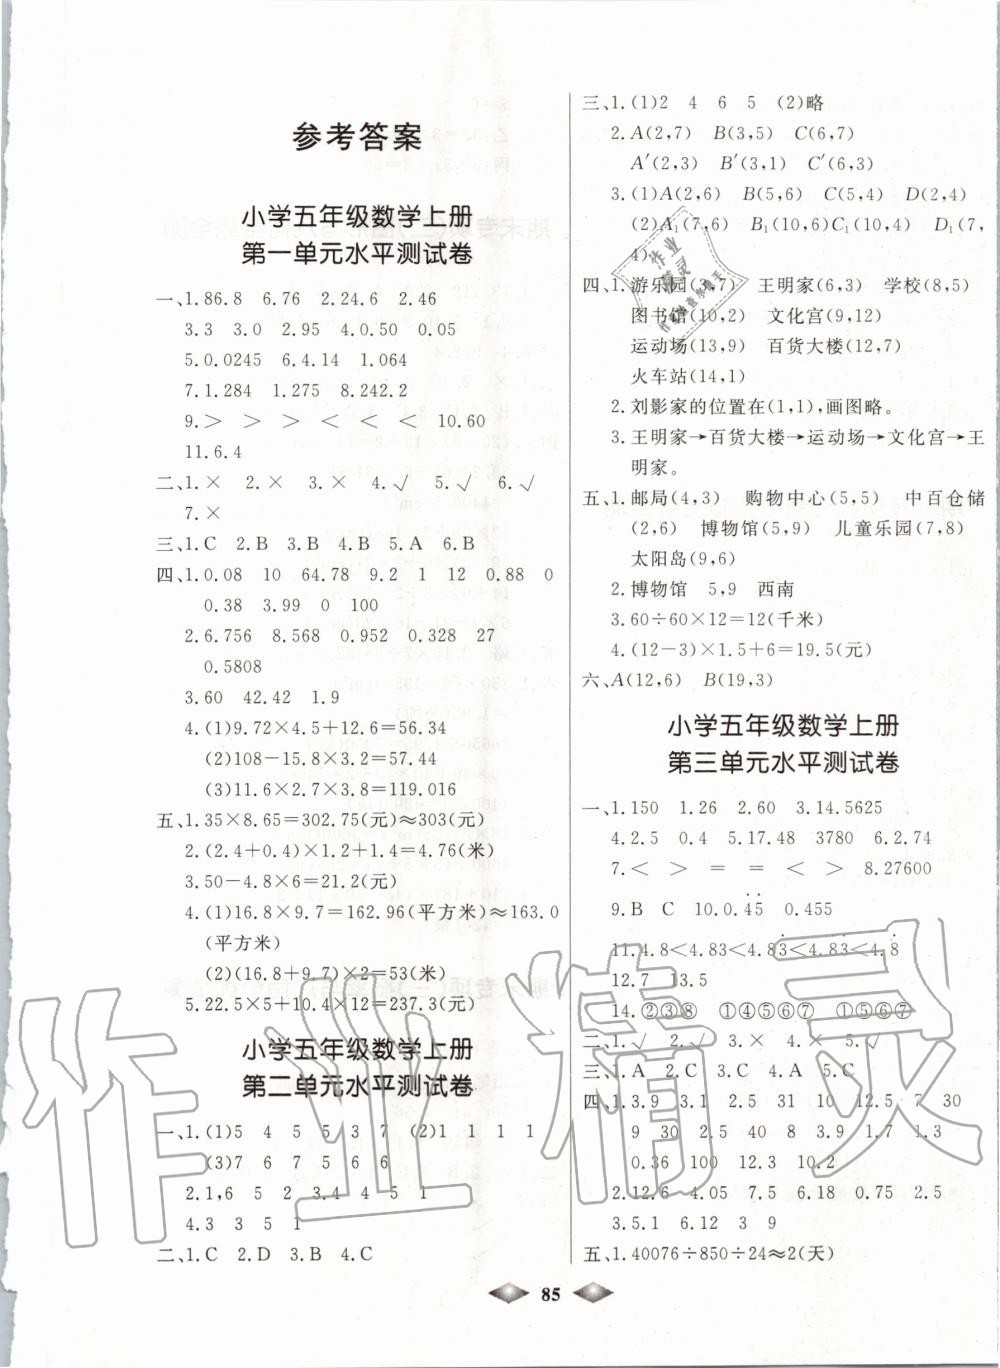 参考答案
小学五年级数学上册
第一单元水平测试卷
一、1.86.8 6.76 2.24.6 2.46
3.3 3.0 2.95 4.0.50 0.05
5.0.0245 6.4.14 1.064
7.1.284 1.275 8.242.2
9.> > < < < < 10.60
11.6.4
二、1.× 2.× 3.× 4.√ 5.√ 6.√
7.×
三、1.C 2.B 3.B 4.B 5.A 6.B
四、1.0.08 10 64.78 9.2 1 12 0.88 0
0.38 3.99 0 100
2.6.756 8.568 0.952 0.328 27
0.5808
3.60 42.42 1.9
4.(1)9.72×4.5+12.6=56.34
(2)108-15.8×3.2=57.44
(3)11.6×2.7×3.8=119.016
五、1.35×8.65=302.75(元)≈303(元)
2.(2.4+0.4)×1.2+1.4=4.76(米)
3.50-4.8×6=21.2(元)
4.(1)16.8×9.7=162.96(平方米)≈163.0
(平方米)
(2)(16.8+9.7)×2=53(米)
5.22.5×5+10.4×12=237.3(元)
小学五年级数学上册
第二单元水平测试卷
一、1.(1)5 4 5 5 3 7 (2)1 1 1 1
(3)7 6 7 5 6 6
2.1,6 5 2 3.4 4 5 1
4.3 3 5 1
二、1.C 2.D 3.B 4.C
三、1.(1)2 4 6 5 (2)略
2.A(2,7) B(3,5) C(6,7)
A′(2,3) B′(3,1) C′(6,3)
3.(1)A(2,6) B(5,6) C(5,4) D(2,4)
(2)A₁(7,6) B₁(10,6) C₁(10,4) D₁(7,
4)
四、1.游乐园(3,7) 王明家(6,3) 学校(8,5)
图书馆(10,2) 文化宫(9,12)
运动场(13,9) 百货大楼(12,7)
火车站(14,1)
2.刘影家的位置在(1,1),画图略。
3.王明家→百货大楼→运动场→文化宫→王
明家。
五、1.邮局(4,3) 购物中心(5,5) 中百仓储
(2,6) 博物馆(5,9) 儿童乐园(7,8)
太阳岛(9,6)
2.博物馆 5,9 西南
3.60÷60×12=12(千米)
4.(12-3)×1.5+6=19.5(元)
六、A(12,6) B(19,3)
小学五年级数学上册
第三单元水平测试卷
一、1.150 1.26 2.60 3.14.5625
4.2.5 0.4 5.17.48 3780 6.2.74
7.< > = = < > 8.27600
9.B C 10.0.4̇5̇ 0.455
11.4.8<4.83<4.8̇3̇<4.83̇<4.8̇
12.7 13.5
14.②③⑧ ①④⑤⑥⑦ ①⑤⑥⑦
二、1.√ 2.√ 3.× 4.× 5.√
三、1.A 2.C 3.C 4.A 5.C
四、1.3.9 3.1 2.5 31 10 12.5 7 30
9 30 2.5 40 8 3.9 1.7 1.3
0.36 100 12.3 10.2
2.12.6 4.05 7.5 6.18 0.75 2.5
3.5.1 6.12 3 9
五、1.40076÷850÷24≈2(天)
85
作业精灵